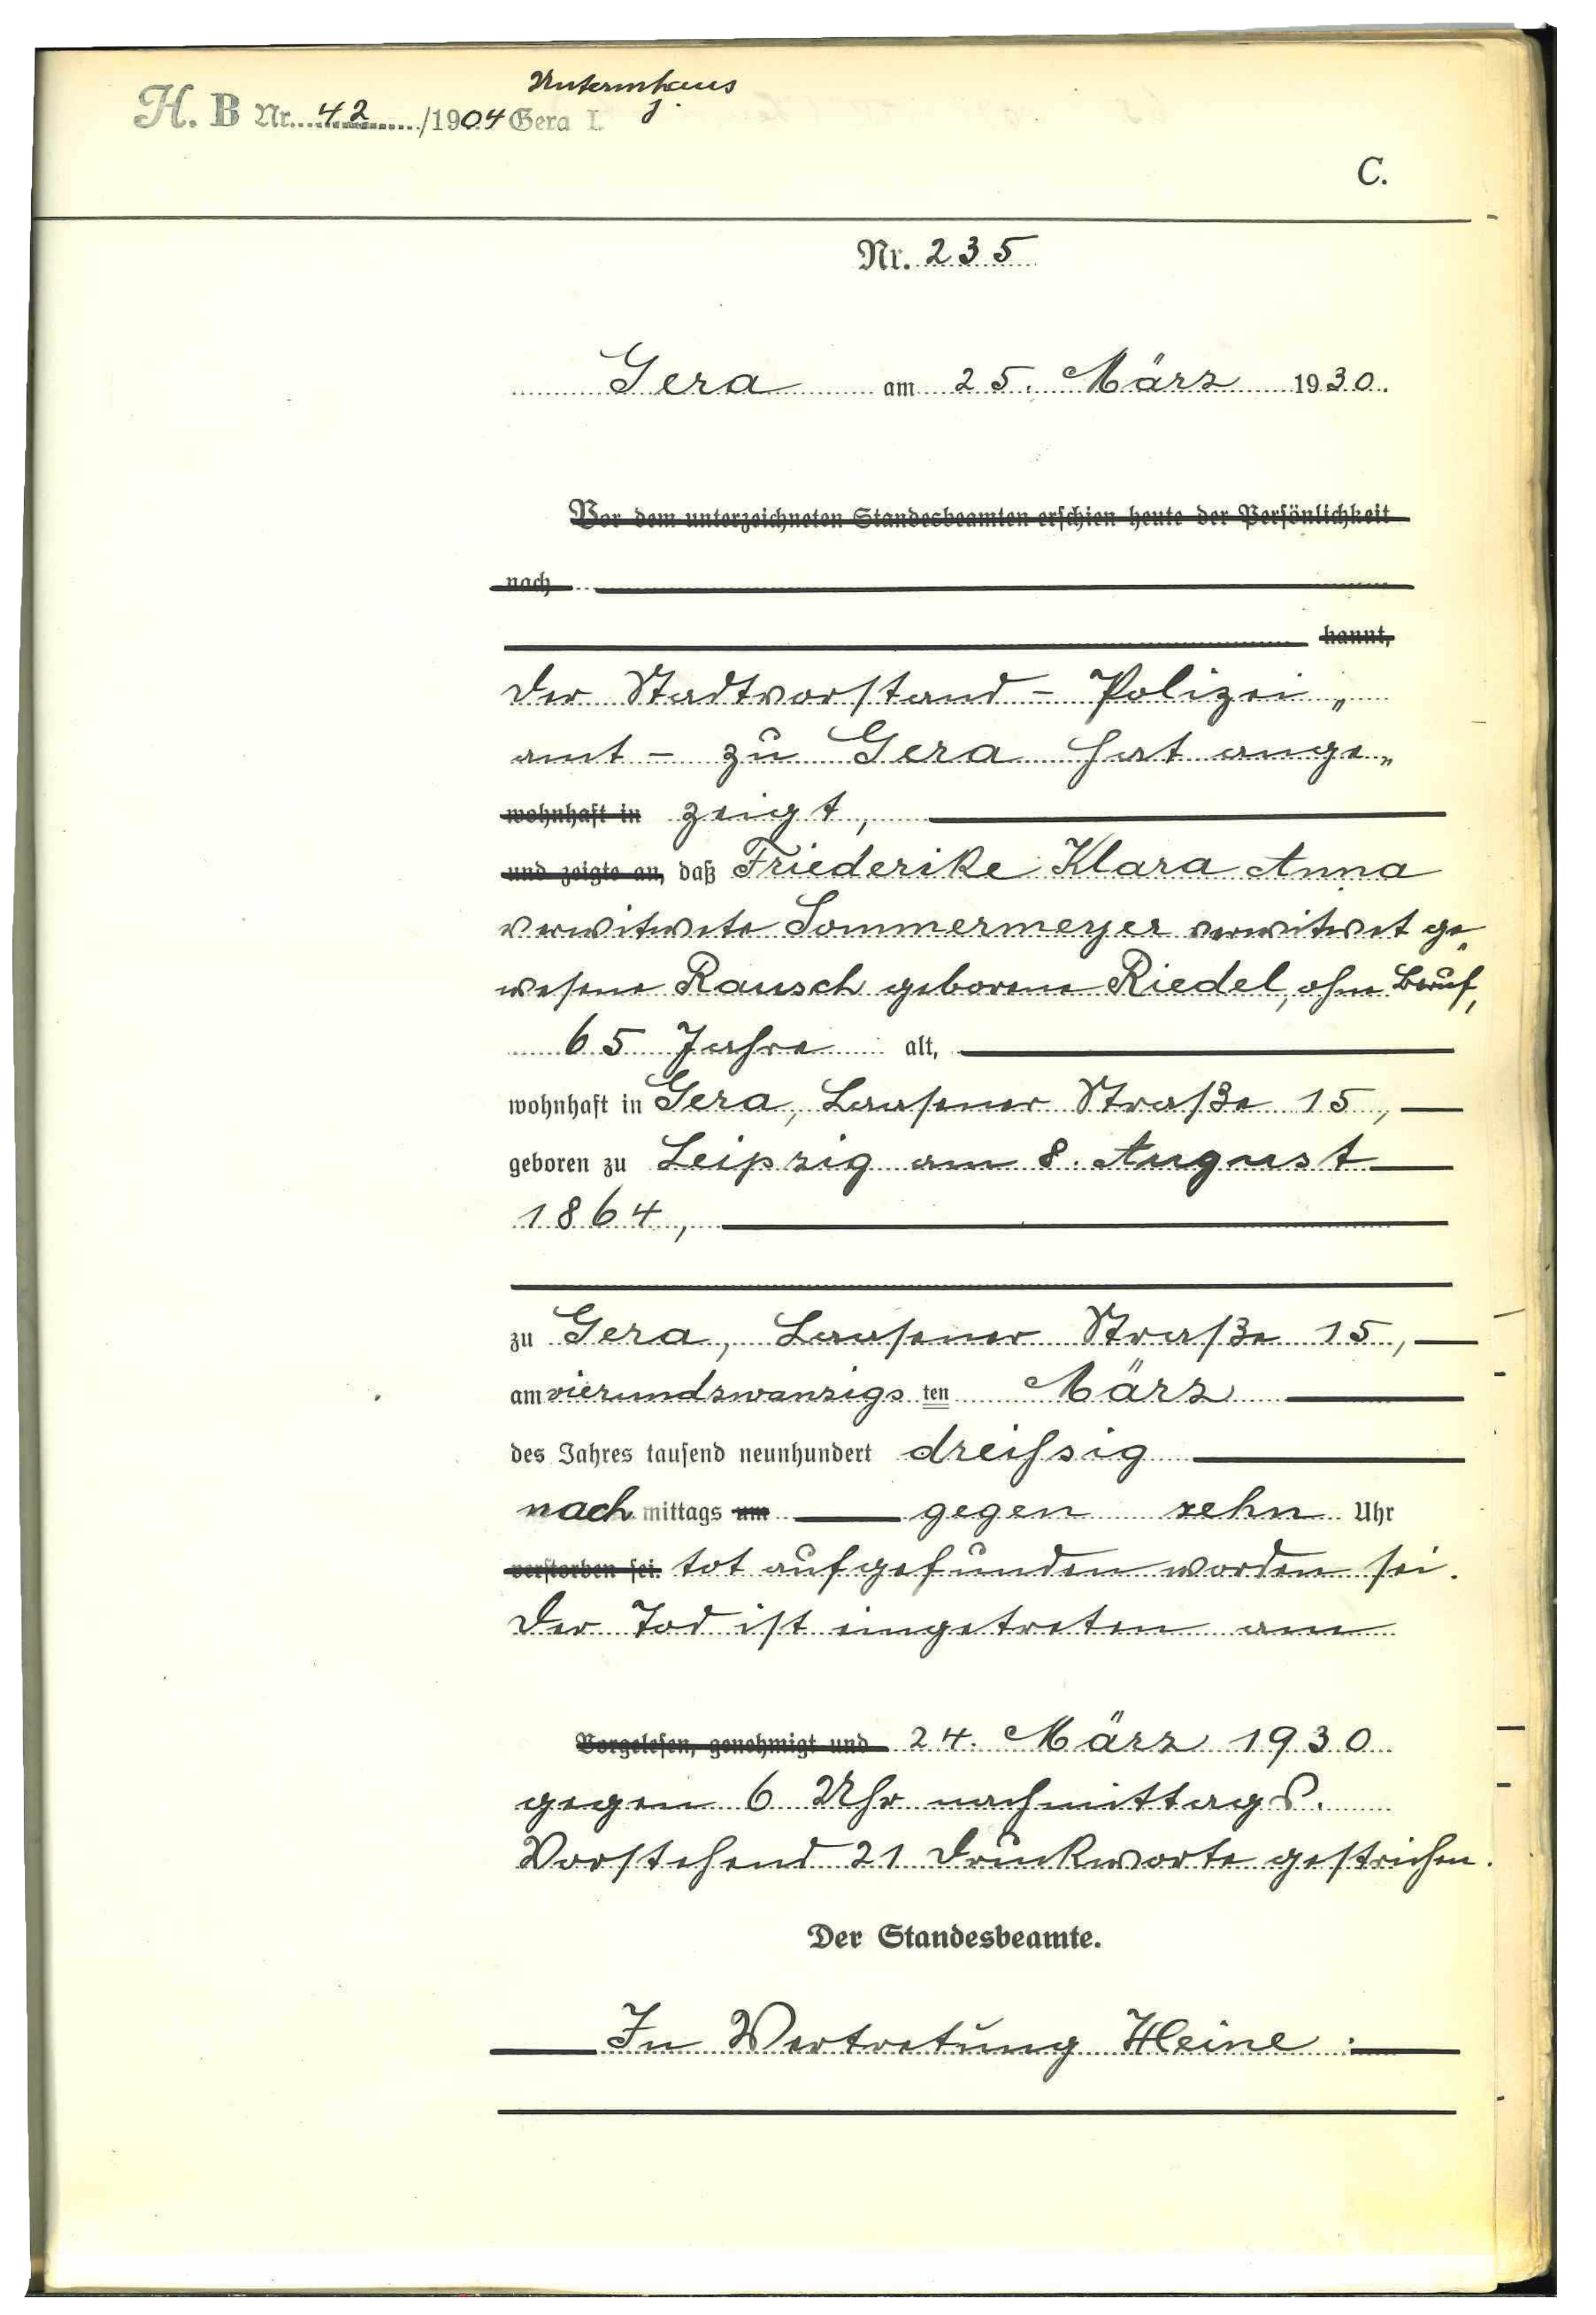 Untermhaus
H. B Nr. 42 /1904 Gera I.
C.
Nr. 235
Gera am 25. März 1930.
Vor dem unterzeichneten Standesbeamten erschien heute der Persönlichkeit
nach
kannt,
Der Stadtvorstand - Polizei„
amt - zu Gera hat ange„
wohnhaft in zeigt,
und zeigte an, daß Friederike Klara Anna
verwitwete Sommermeyer verwitwet ge„
wesene Rausch geborene Riedel, ohne Beruf,
65 Jahre alt,
wohnhaft in Gera, Laasener Straße 15,
geboren zu Leipzig am 8. August
1864,
zu Gera, Laasener Straße 15,
am vierundzwanzigsten März
des Jahres tausend neunhundert dreißig
nachmittags um gegen zehn Uhr
verstorben sei. tot aufgefunden worden sei.
Der Tod ist eingetreten am
Vorgelesen, genehmigt und 24. März 1930
gegen 6 Uhr nachmittags.
Vorstehend 21 Druckworte gestrichen.
Der Standesbeamte.
In Vertretung Heine.